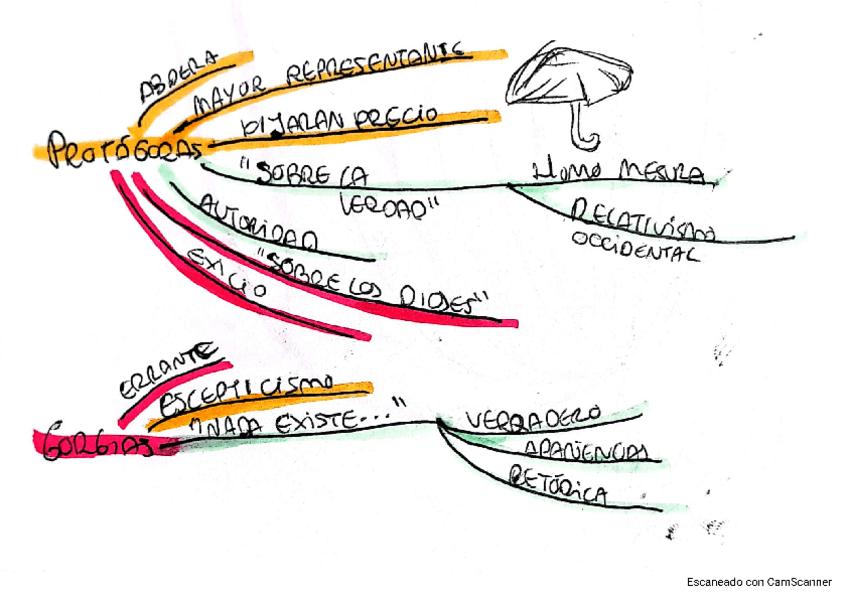 ABDERA
MAYOR REPRESENTANTE
DIJARAN PRECIO
PROTÁGORAS
"SOBRE LA
VERDAD"
HOMO MESURA
RELATIVISMO
OCCIDENTAL
AUTORIDAD
"SOBRE LOS DIOSES"
EXICIO
ERRANTE
ESCEPTICISMO
"NADA EXISTE..."
GORGIAS
VERDADERO
APARIENCIAS
RETÓRICA
Escaneado con CamScanner